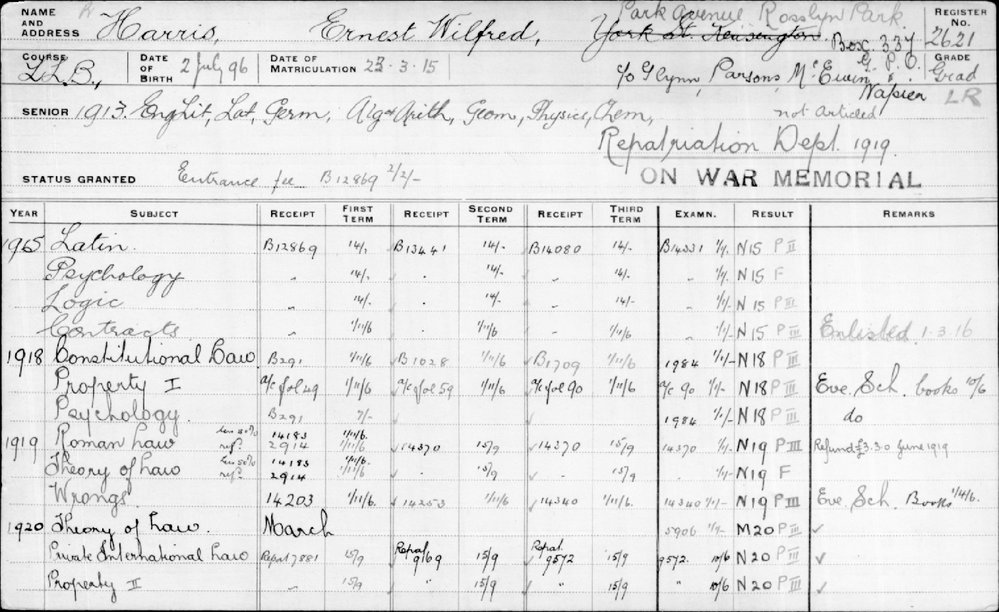 NAME AND ADDRESS Harris, Ernest Wilfred, Park Avenue Rosslyn Park REGISTER No. 2621
York St. Kensington. Box 337 G.P.O.
COURSE LL.B., DATE OF BIRTH 2 July 96 DATE OF MATRICULATION 23.3.15 c/o Glynn, Parsons, McEwin & Napier GRADE Grad
LR
SENIOR 1913 Englit, Lat, Germ, Alg Arith, Geom, Physics, Chem, not articled
Repatriation Dept. 1919.
ON WAR MEMORIAL
STATUS GRANTED Entrance fee B12869 2/2/-
YEAR SUBJECT RECEIPT FIRST TERM RECEIPT SECOND TERM RECEIPT THIRD TERM EXAMN. RESULT REMARKS
Latin B12869 14/, B13441 14/- B14080 14/- B14331 1/1/. N15 P II
Psychology " 14/, " 14/- " 14/. " 1/1/. N15 F
Logic " 14/. " 14/- " 14/- " 1/1/- N15 P III
Contracts " 1/11/6 " 1/11/6 " 1/11/6 " 1/1/- N15 P III Enlisted 1-3-16
1918 Constitutional Law B291 1/11/6 B1028 1/11/6 B1709 1/11/6 1984 1/1/- N18 P III
Property I a/c fol 49 1/11/6 a/c fol 59 1/11/6 a/c fol 90 1/11/6 a/c 90 1/1/- N18 P III Eve. Sch. books 10/6
Psychology B291 7/- 1984 1/1/- N18 P III do
1919 Roman Law 14183 1/11/6. 2914 1/11/6 14370 15/9 14370 15/9 14370 1/1/- N19 P III Refund £3.3.0 June 1919
Theory of Law 14183 1/11/6. 2914 1/11/6 " 15/9 " 15/9 " 1/1/- N19 F
Wrongs 14203 1/11/6. 14253 1/11/6 14340 1/11/6. 14340 1/1/- N19 P III Eve. Sch. Books 1/4/6.
1920 Theory of Law. March 5906 1/1/- M20 P II ✓
Private International Law Repat 7881 15/9 Repat 9169 15/9 Repat. 9572 15/9 9572. 10/6 N20 P III ✓
Property II 15/9 " 15/9 " 15/9 " 10/6 N20 P III ✓